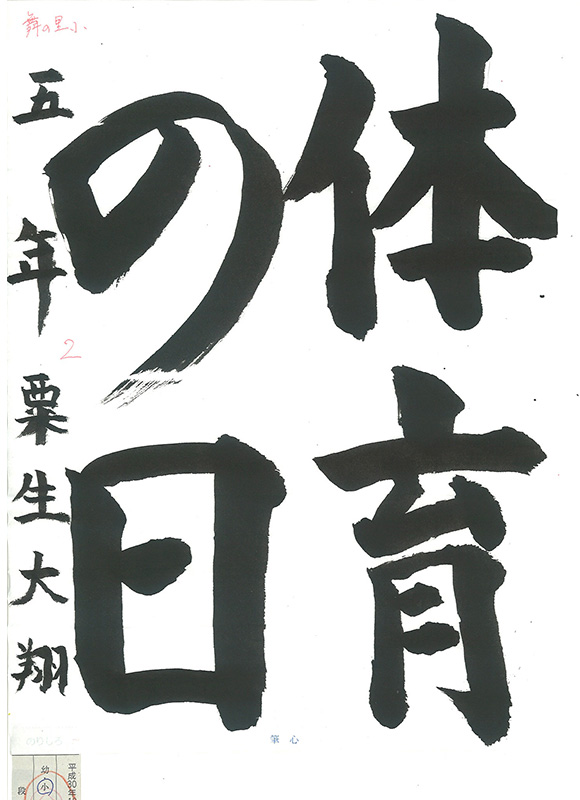 体育
の日
五年 栗生大翔
舞の里小
2
筆心
のりしろ
平成30年
幼
小
段